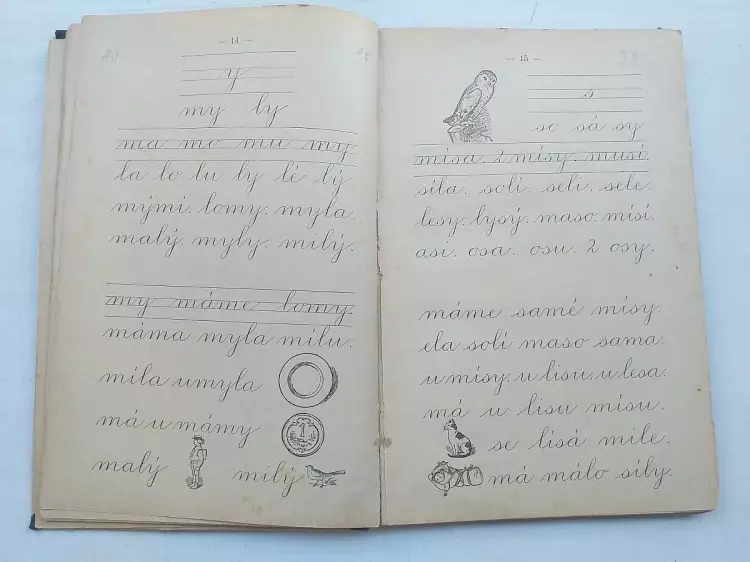 — 14 —
y
my ly
ma mo mu my
la lo lu ly lé lý
mými. lomy. myla.
malý. myly. milý.
my máme lomy.
máma myla milu.
míla umyla
má u mámy
1
malý milý
— 15 —
s
so sá sy
mísa. 2 mísy. musí.
síla. solí. seli. sele.
lesy. lysý. maso. mísí.
asi. osa. osu. 2 osy.
máme samé mísy.
ela solí maso sama.
u mísy. u lisu. u lesa.
má u lisu mísu.
se lísá mile.
má málo síly.